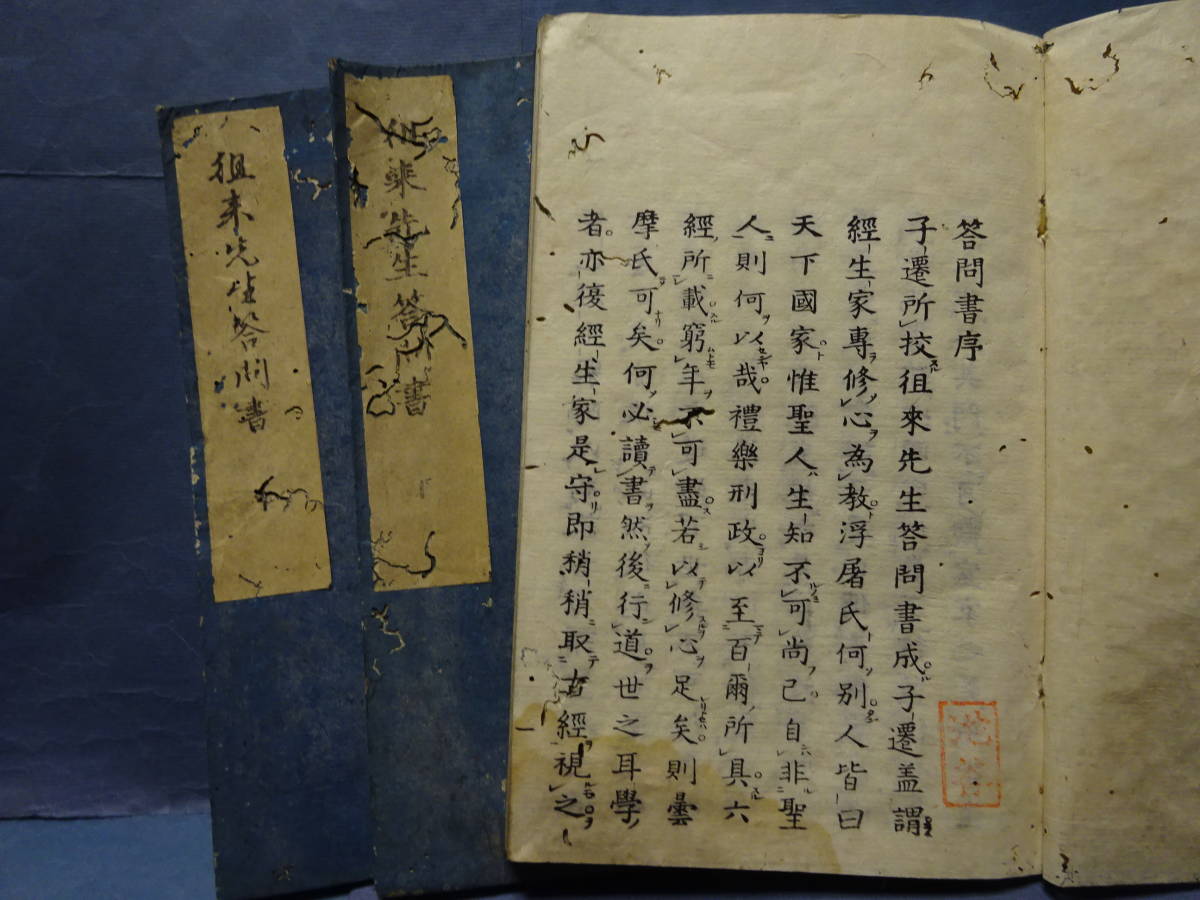 答問書序
子遷所校徂來先生答問書成子遷盖謂
經生家專修心為教浮屠氏何別人皆曰
天下國家惟聖人生知不可尚已自非聖
人則何以哉禮樂刑政以至百爾所具六
經所載窮年不可盡若以修心足矣則曇
摩氏可矣何必讀書然後行道世之耳學
者亦復經生家是守即稍稍取古經視之
徂來先生答問書
徂來先生答問書